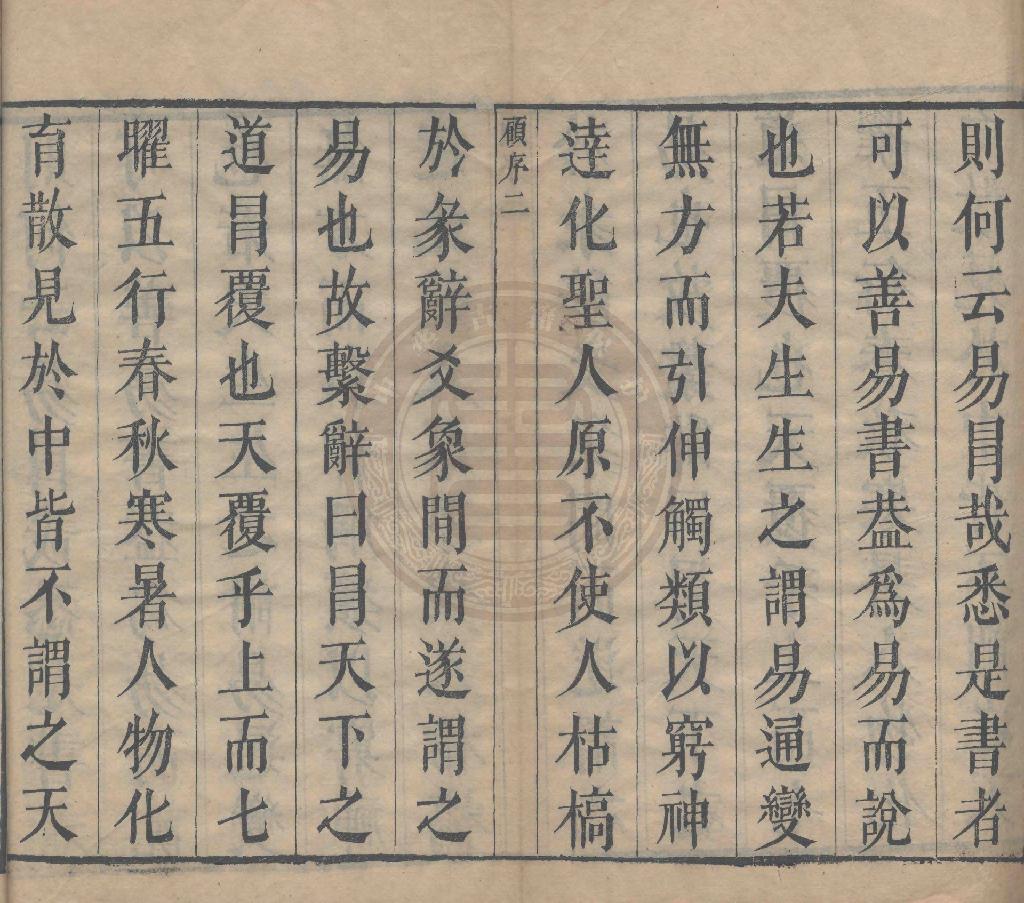 則何云易冐哉悉是書者
可以善易書葢爲易而說
也若夫生生之謂易通變
無方而引伸觸類以窮神
達化聖人原不使人枯槁
顧序二
於彖辭爻象間而遂謂之
易也故繫辭曰冐天下之
道冐覆也天覆乎上而七
曜五行春秋寒暑人物化
育散見於中皆不謂之天